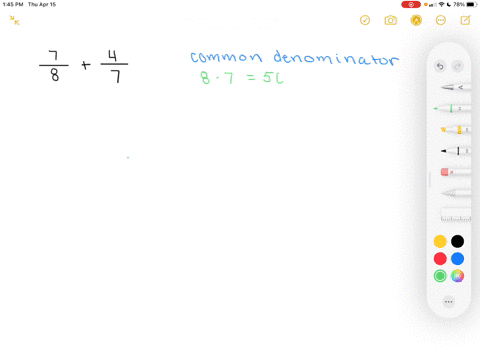 1:45 PM Thu Apr 15
78%
7/8 + 4/7
common denominator
8 · 7 = 5